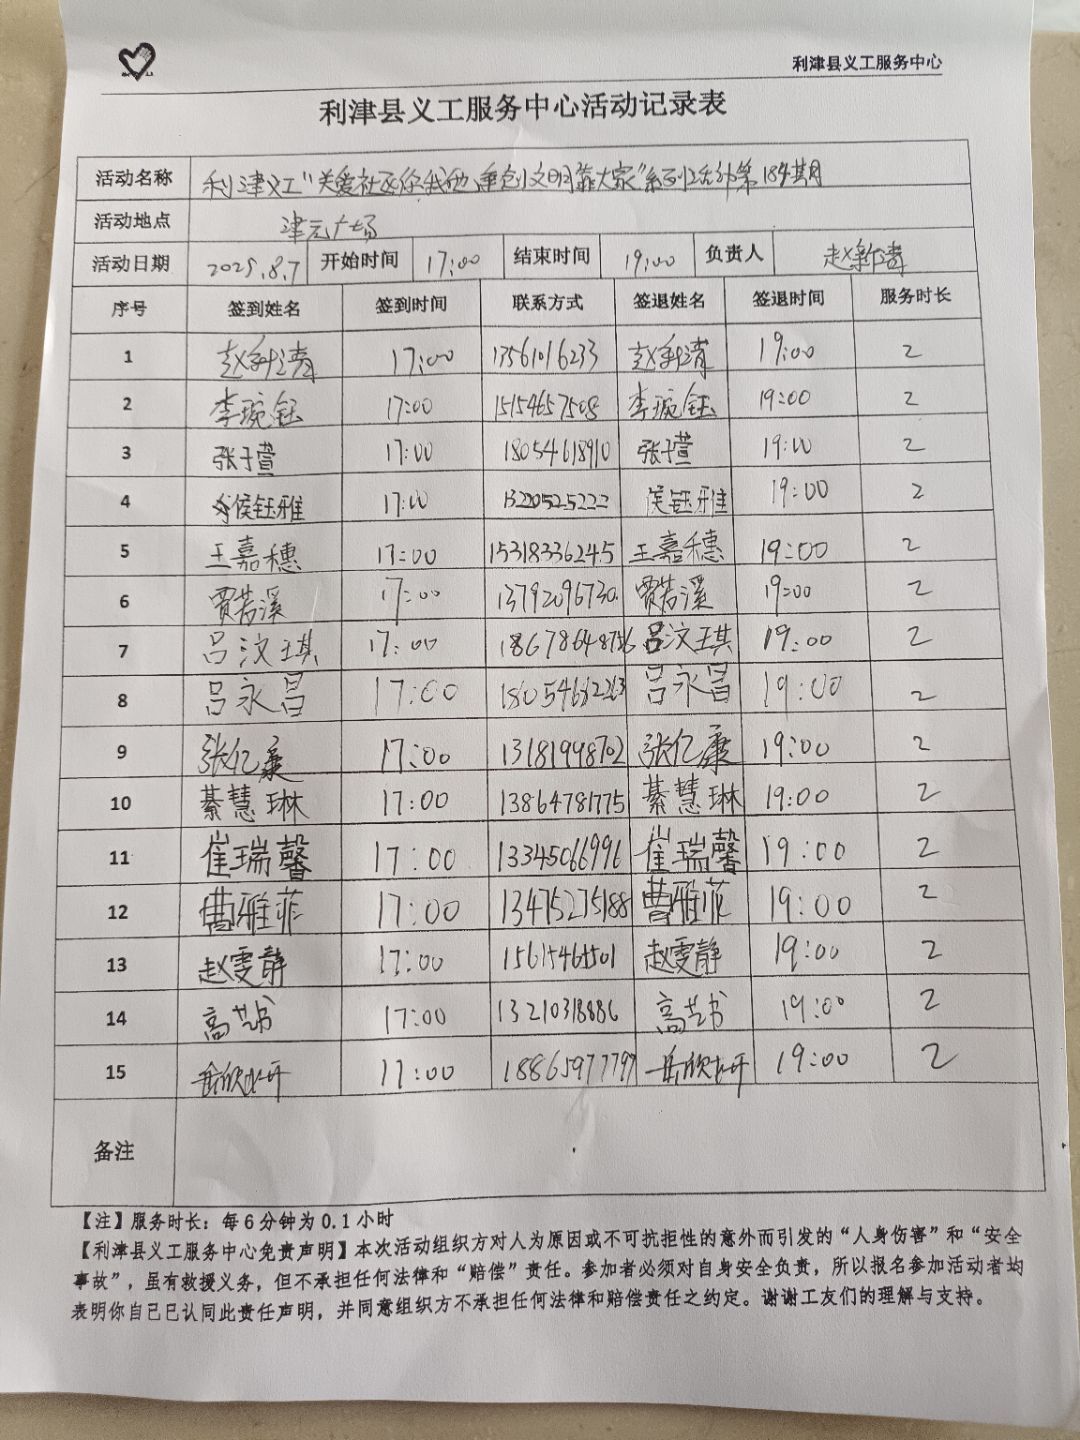 利津县义工服务中心
利津县义工服务中心活动记录表
活动名称 利津义工"关爱社区你我他,重创文明靠大家"系列活动第184期
活动地点 津元广场
活动日期 2025.8.7 开始时间 17:00 结束时间 19:00 负责人 赵新清
序号 签到姓名 签到时间 联系方式 签退姓名 签退时间 服务时长
1 赵新清 17:00 13561016233 赵新清 19:00 2
2 李琬钰 17:00 15154657508 李琬钰 19:00 2
3 张于萱 17:00 18054618910 张于萱 19:00 2
4 侯钰雅 17:00 13220525222 侯钰雅 19:00 2
5 王嘉穗 17:00 15318336245 王嘉穗 19:00 2
6 贾若溪 17:00 13792096730 贾若溪 19:00 2
7 吕汶琪 17:00 吕汶琪 19:00 2
8 吕永昌 17:00 吕永昌 19:00 2
9 张亿康 17:00 13181998702 张亿康 19:00 2
10 綦慧琳 17:00 13864781775 綦慧琳 19:00 2
11 崔瑞馨 17:00 13345066996 崔瑞馨 19:00 2
12 曹雅菲 17:00 13475275188 曹雅菲 19:00 2
13 赵雯静 17:00 赵雯静 19:00 2
14 高艺书 17:00 13210318886 高艺书 19:00 2
15 17:00 18865977797 19:00 2
备注
【注】服务时长：每6分钟为0.1小时
【利津县义工服务中心免责声明】本次活动组织方对人为原因或不可抗拒性的意外而引发的“人身伤害”和“安全
事故”，虽有救援义务，但不承担任何法律和“赔偿”责任。参加者必须对自身安全负责，所以报名参加活动者均
表明你自己已认同此责任声明，并同意组织方不承担任何法律和赔偿责任之约定。谢谢工友们的理解与支持。